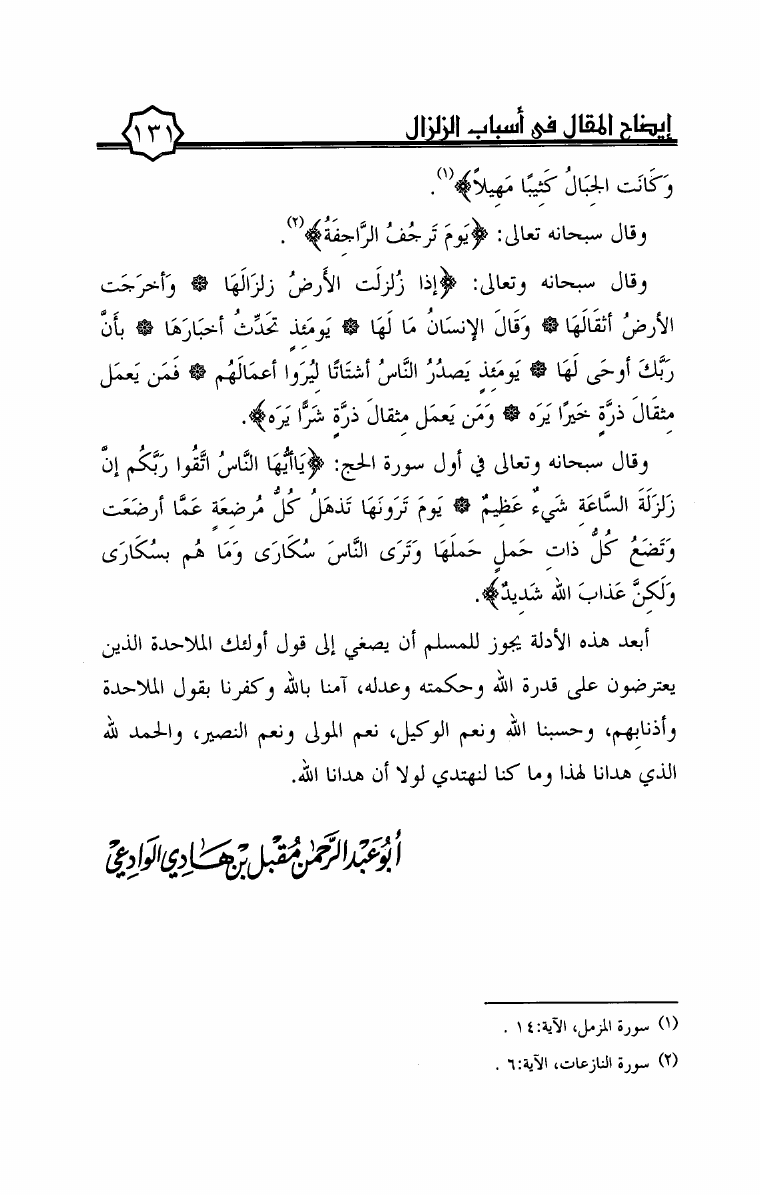 إيضاح المقال في أسباب الزلزال
١٣١
وَكَانَت الجِبَالُ كَثِيبًا مَهِيلاً﴾(١).
وقال سبحانه تعالى: ﴿يَومَ تَرجُفُ الرَّاجِفَةُ﴾(٢).
وقال سبحانه وتعالى: ﴿إذَا زُلزلَت الأَرضُ زلزَالَهَا ۞ وَأَخرَجَت
الأَرضُ أَثقَالَهَا ۞ وَقَالَ الإِنسَانُ مَا لَهَا ۞ يَومَئِذٍ تُحَدِّثُ أَخبَارَهَا ۞ بأَنَّ
رَبَّكَ أَوحَى لَهَا ۞ يَومَئِذٍ يَصدُرُ النَّاسُ أَشتَاتًا لِيُرَوا أَعمَالَهُم ۞ فَمَن يَعمَل
مِثقَالَ ذرَّةٍ خَيرًا يَرَه ۞ وَمَن يَعمَل مِثقَالَ ذرَّةٍ شَرًّا يَرَه﴾.
وقال سبحانه وتعالى في أول سورة الحج: ﴿يَاأَيُّهَا النَّاسُ اتَّقُوا رَبَّكُم إنَّ
زَلزَلَةَ السَّاعَةِ شَيءٌ عَظِيمٌ ۞ يَومَ تَرَونَهَا تَذهَلُ كُلُّ مُرضِعَةٍ عَمَّا أَرضَعَت
وَتَضَعُ كُلُّ ذَاتِ حَملٍ حَملَهَا وَتَرَى النَّاسَ سُكَارَى وَمَا هُم بسُكَارَى
وَلَكِنَّ عَذَابَ الله شَدِيدٌ﴾.
أبعد هذه الأدلة يجوز للمسلم أن يصغي إلى قول أولئك الملاحدة الذين
يعترضون على قدرة الله وحكمته وعدله، آمنا بالله وكفرنا بقول الملاحدة
وأذنابِهم، وحسبنا الله ونعم الوكيل، نعم المولى ونعم النصير، والحمد لله
الذي هدانا لهذا وما كنا لنهتدي لولا أن هدانا الله.
أبو عَبْد الرَّحمٰن مُقْبِل بْن هَادِي الوَادِعِيّ
(١) سورة المزمل، الآية:١٤ .
(٢) سورة النازعات، الآية:٦ .